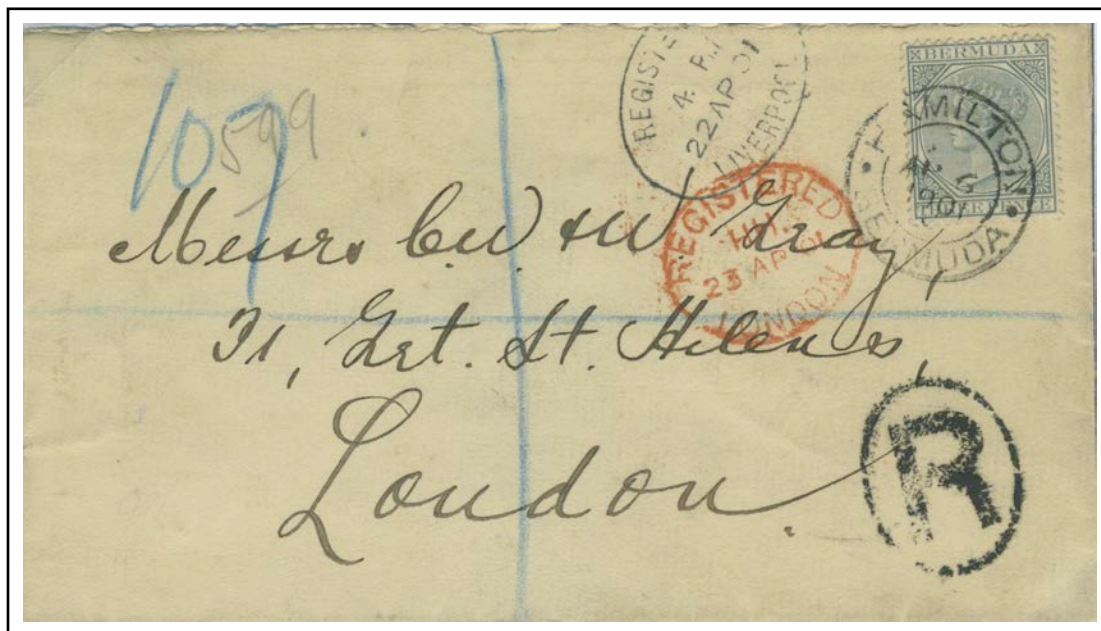 1077
599
REGISTERED
4 P.M
22 AP 01
LIVERPOOL
BERMUDA
HAMILTON
BERMUDA
REGISTERED
23 AP 01
LONDON
Messrs C.W. & W Gray,
31, Grt. St. Helens,
London
R